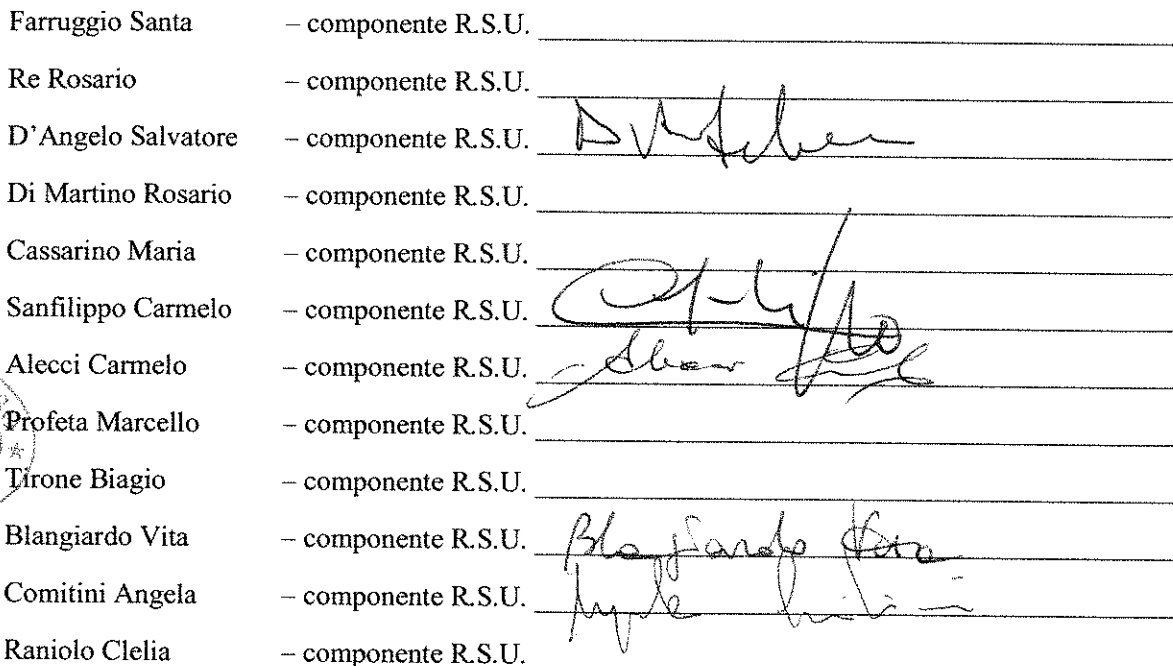 Farruggio Santa – componente R.S.U.
Re Rosario – componente R.S.U.
D'Angelo Salvatore – componente R.S.U.
Di Martino Rosario – componente R.S.U.
Cassarino Maria – componente R.S.U.
Sanfilippo Carmelo – componente R.S.U.
Alecci Carmelo – componente R.S.U.
Profeta Marcello – componente R.S.U.
Tirone Biagio – componente R.S.U.
Blangiardo Vita – componente R.S.U. Blangiardo Vita
Comitini Angela – componente R.S.U.
Raniolo Clelia – componente R.S.U.